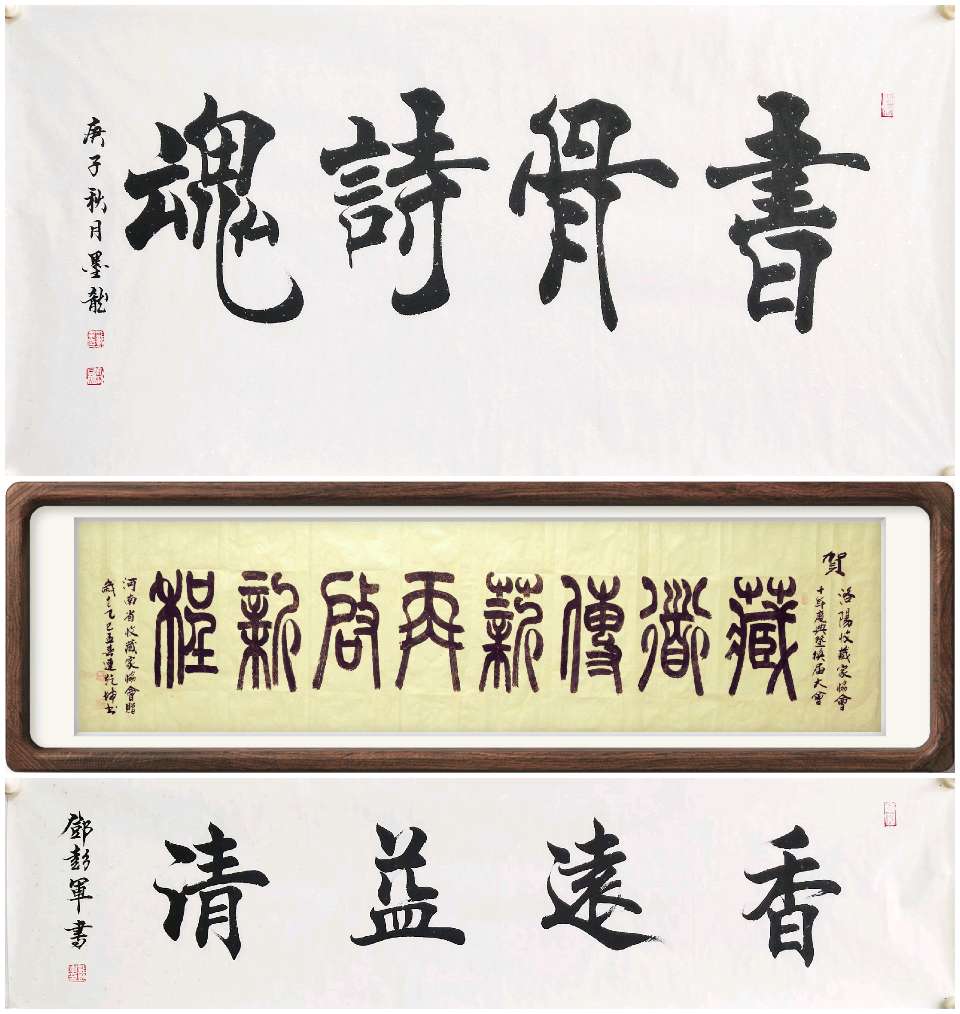 書骨詩魂
庚子秋月墨龍
賀
洛陽收藏家協會
十年慶典暨換届大會
藏道傳薪再启新程
河南省收藏家協會贈
歲在乙巳孟春連乾坤书
香遠益清
鄧彭軍書